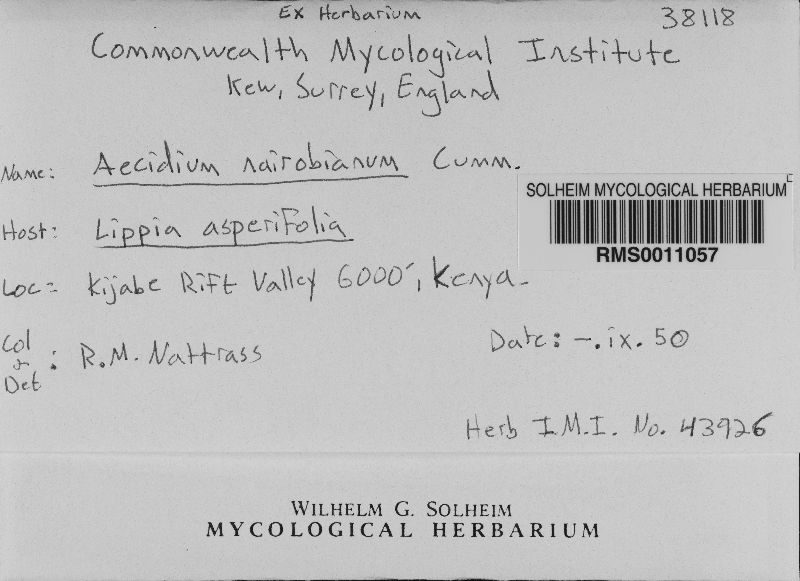 Ex Herbarium
38118
Commonwealth Mycological Institute
Kew, Surrey, England
Name: Aecidium nairobianum Cumm.
SOLHEIM MYCOLOGICAL HERBARIUM
RMS0011057
Host: Lippia asperifolia
Loc: Kijabe Rift Valley 6000', Kenya.
Col & Det : R.M. Nattrass
Date: -.ix.50
Herb I.M.I. No. 43926
WILHELM G. SOLHEIM
MYCOLOGICAL HERBARIUM